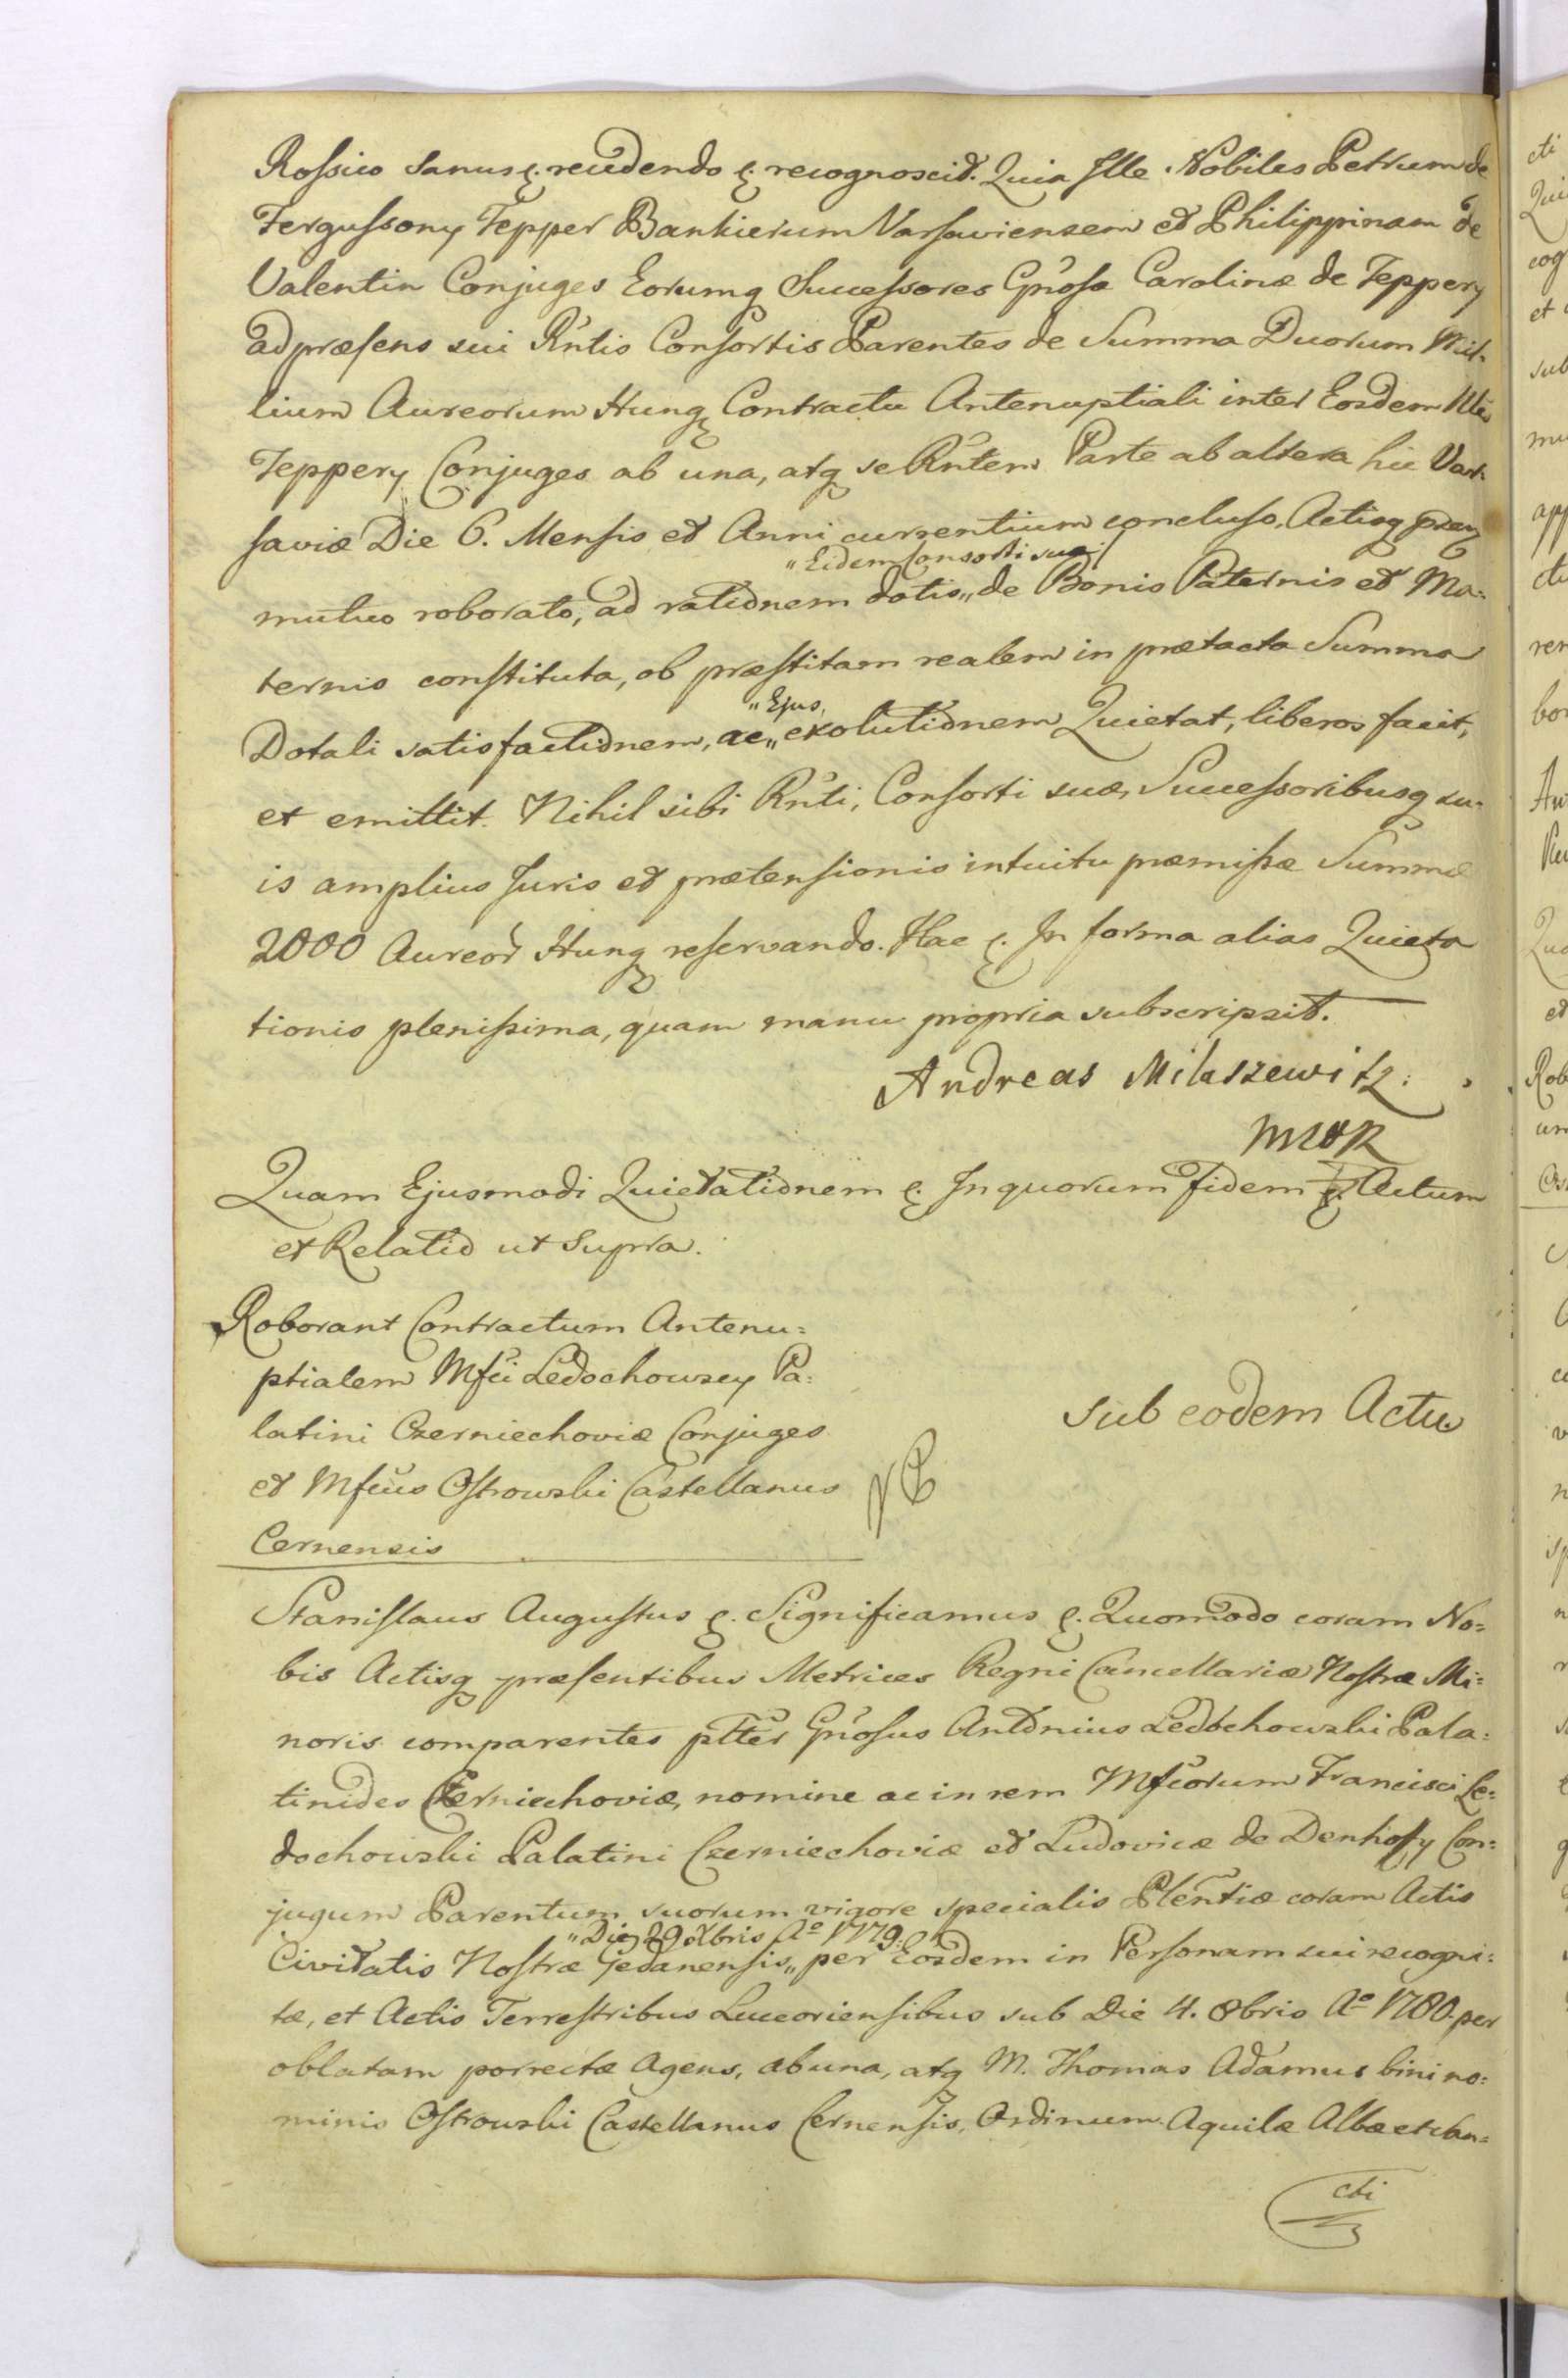 Rossico Sanus &. recedendo &. recognoscit. Quia Ille Nobiles Petrum de
Fergussony Tepper Bankierum Varsaviensem et Philippinam de
Valentin Conjuges Eorumq Successores Gnosa Carolinæ de Teppery
ad præsens sui Rntis Consortis Parentes de Summa Duorum Mil-
lium Aureorum Hung Contractu Antenuptiali inter Eosdem Nles
Teppery Conjuges ab una, atq se Rntem Parte ab altera hic Var-
saviæ Die 6. Mensis et Anni currentium concluso, Actisq præ
"Eidem Consorti suæ
mutuo roborato, ad rationem dotis" de Bonis Paternis et Ma-
ternis constituta, ob præstitam realem in prætacta Summa
"Ejus,
Dotali satisfactionem, ac" exolutionem Quietat, liberos facit,
et emittit. Nihil sibi Rnti, Consorti suæ, Successoribusq su-
is amplius Juris et prætensionis intuitu præmissæ Summæ
2000 Aureor Hung reservando. Hac &. In forma alias Quieta
tionis plenissima, quam manu propria subscripsit.
Andreas Milaszewitz:
Quam Ejusmodi Quietationem &. In quorum fidem &. Actum
et Relatio ut Supra.
Roborant Contractum Antenu=
ptialem Mfci Ledochowscy Pa=
latini Czerniechoviæ Conjuges
et Mfcus Ostrowski Castellanus
Cernensis
NB
Sub eodem Actu
Stanislaus Augustus &. Significamus &. Quomodo coram No=
bis Actisq præsentibus Metrices Regni Cancellariæ Nostræ Mi=
noris comparentes pltter Gnosus Antonius Ledochowski Pala=
tinides Czerniechoviæ, nomine ac in rem Mfcorum Francisci Le=
dochowski Palatini Czerniechoviæ et Ludovicæ de Denhoffy Con=
jugum Parentum suorum vigore specialis Plentiæ coram Actis
"Die 29 Xbris Aº 1779.
Civitatis Nostræ Gedanensis" per Eosdem in Personam sui recogni=
tæ, et Actis Terrestribus Luceoriensibus sub Die 4. 8bris Aº 1780 per
oblatam porrectæ Agens, ab una, atq M. Thomas Adamus bini no=
minis Ostrowski Castellanus Cernensis, Ordinum Aquilæ Albæ et San=
cti